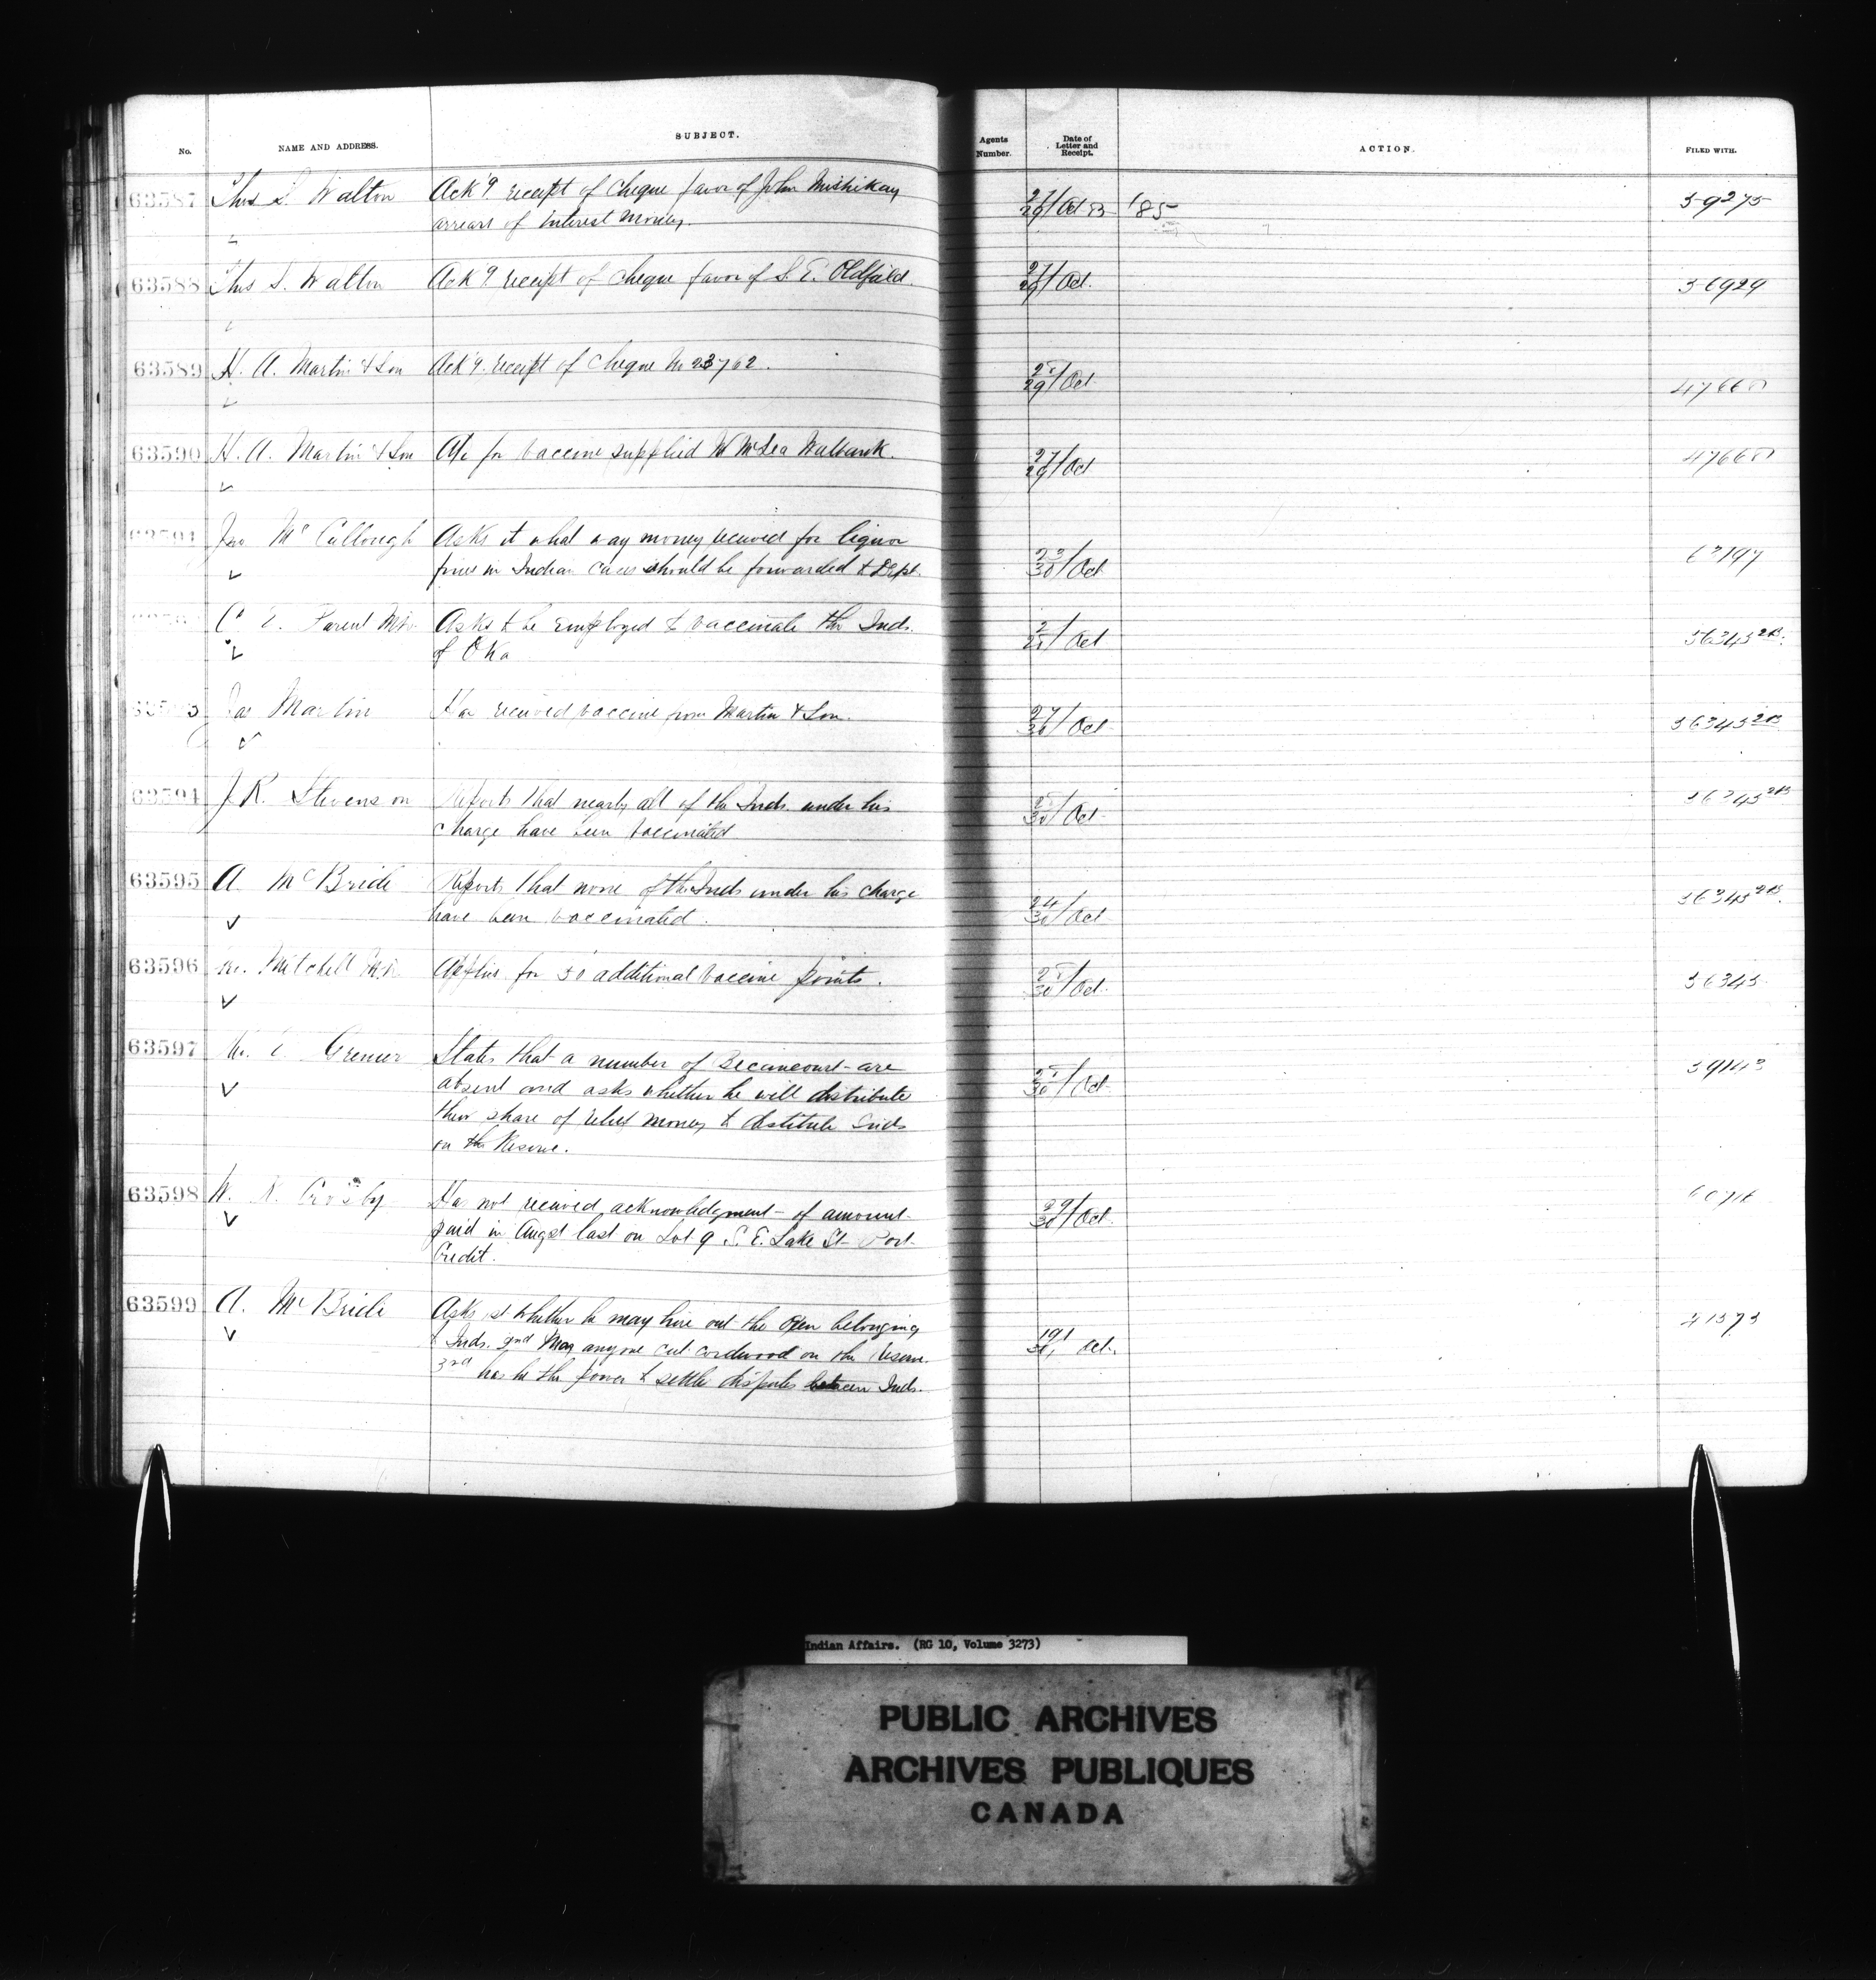 No. NAME AND ADDRESS. SUBJECT. Agents Number. Date of Letter and Receipt. ACTION. FILED WITH.
63587 Thos S. Walton Ack'g receipt of Cheque favor of John Mishikay 27/29/Oct 85 59275
arrears of interest money.
63588 Thos S. Walton Ack'g receipt of Cheque favor of S. E. Oldfield. 27/29/Oct. 36929
63589 H. A. Martin & Son Ack'g receipt of Cheque No 23762. /29/Oct
63590 H. A. Martin & Son A/c for Vaccine supplied W McLea Walbank. 27/29/Oct
Jno McCullough Asks it what way money received for liquor 23/30/Oct
fines in Indian cases should be forwarded to Dept.
C. E. Parent Asks to be employed to vaccinate the Inds. Oct 36345 2B.
of Oka
Jas Martin Has received vaccine from Martin & Son. 27/30/Oct 36345 2B
63594 J. R. Stevenson Reports that nearly all of the Inds. under his /30/Oct 36345 2B
charge have been vaccinated
63595 A McBride Reports that none of the Inds under his charge 24/30/Oct 36345 2B.
have been vaccinated.
63596 Mitchell Applies for 50 additional vaccine points. /30/Oct. 36345
63597 Grenier States that a number of Becancourt are /30/Oct. 39143
absent and asks whether he will distribute
their share of relief money to destitute Inds
on the Reserve.
63598 W. Crosby Has not received acknowledgment of amount 29/30/Oct.
paid in Augst last on Lot 9 S. E. Lake St Port
Credit.
63599 A. McBride Asks 1st whether he may hire out the Oxen belonging 19/30, Oct.
to Inds. 2nd May anyone cut cordwood on the Reserve.
3rd has he the power to settle disputes between Inds.
Indian Affairs. (RG 10, Volume 3273)
PUBLIC ARCHIVES
ARCHIVES PUBLIQUES
CANADA